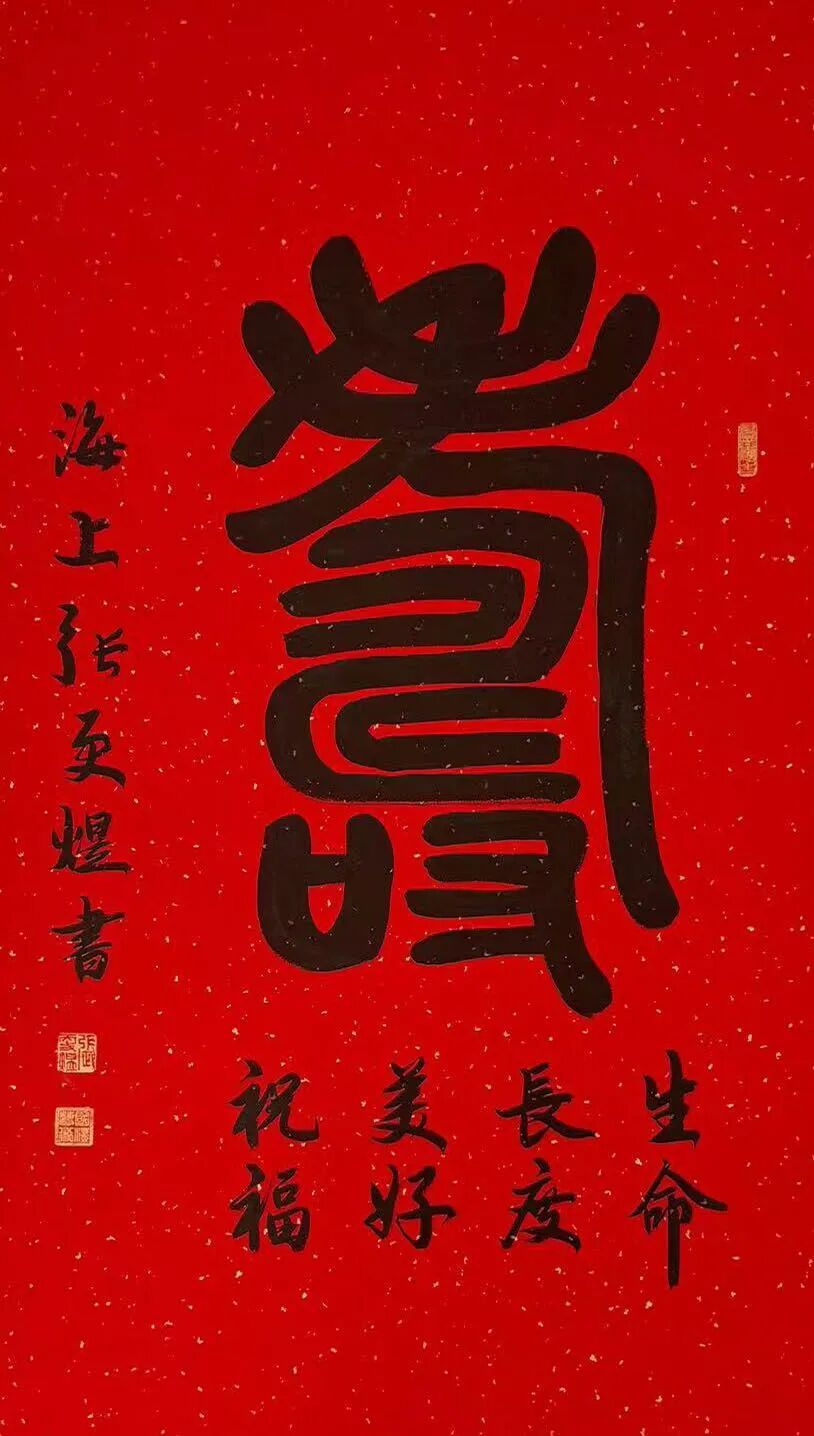 壽
生命
長度
美好
祝福
海上張更煜書